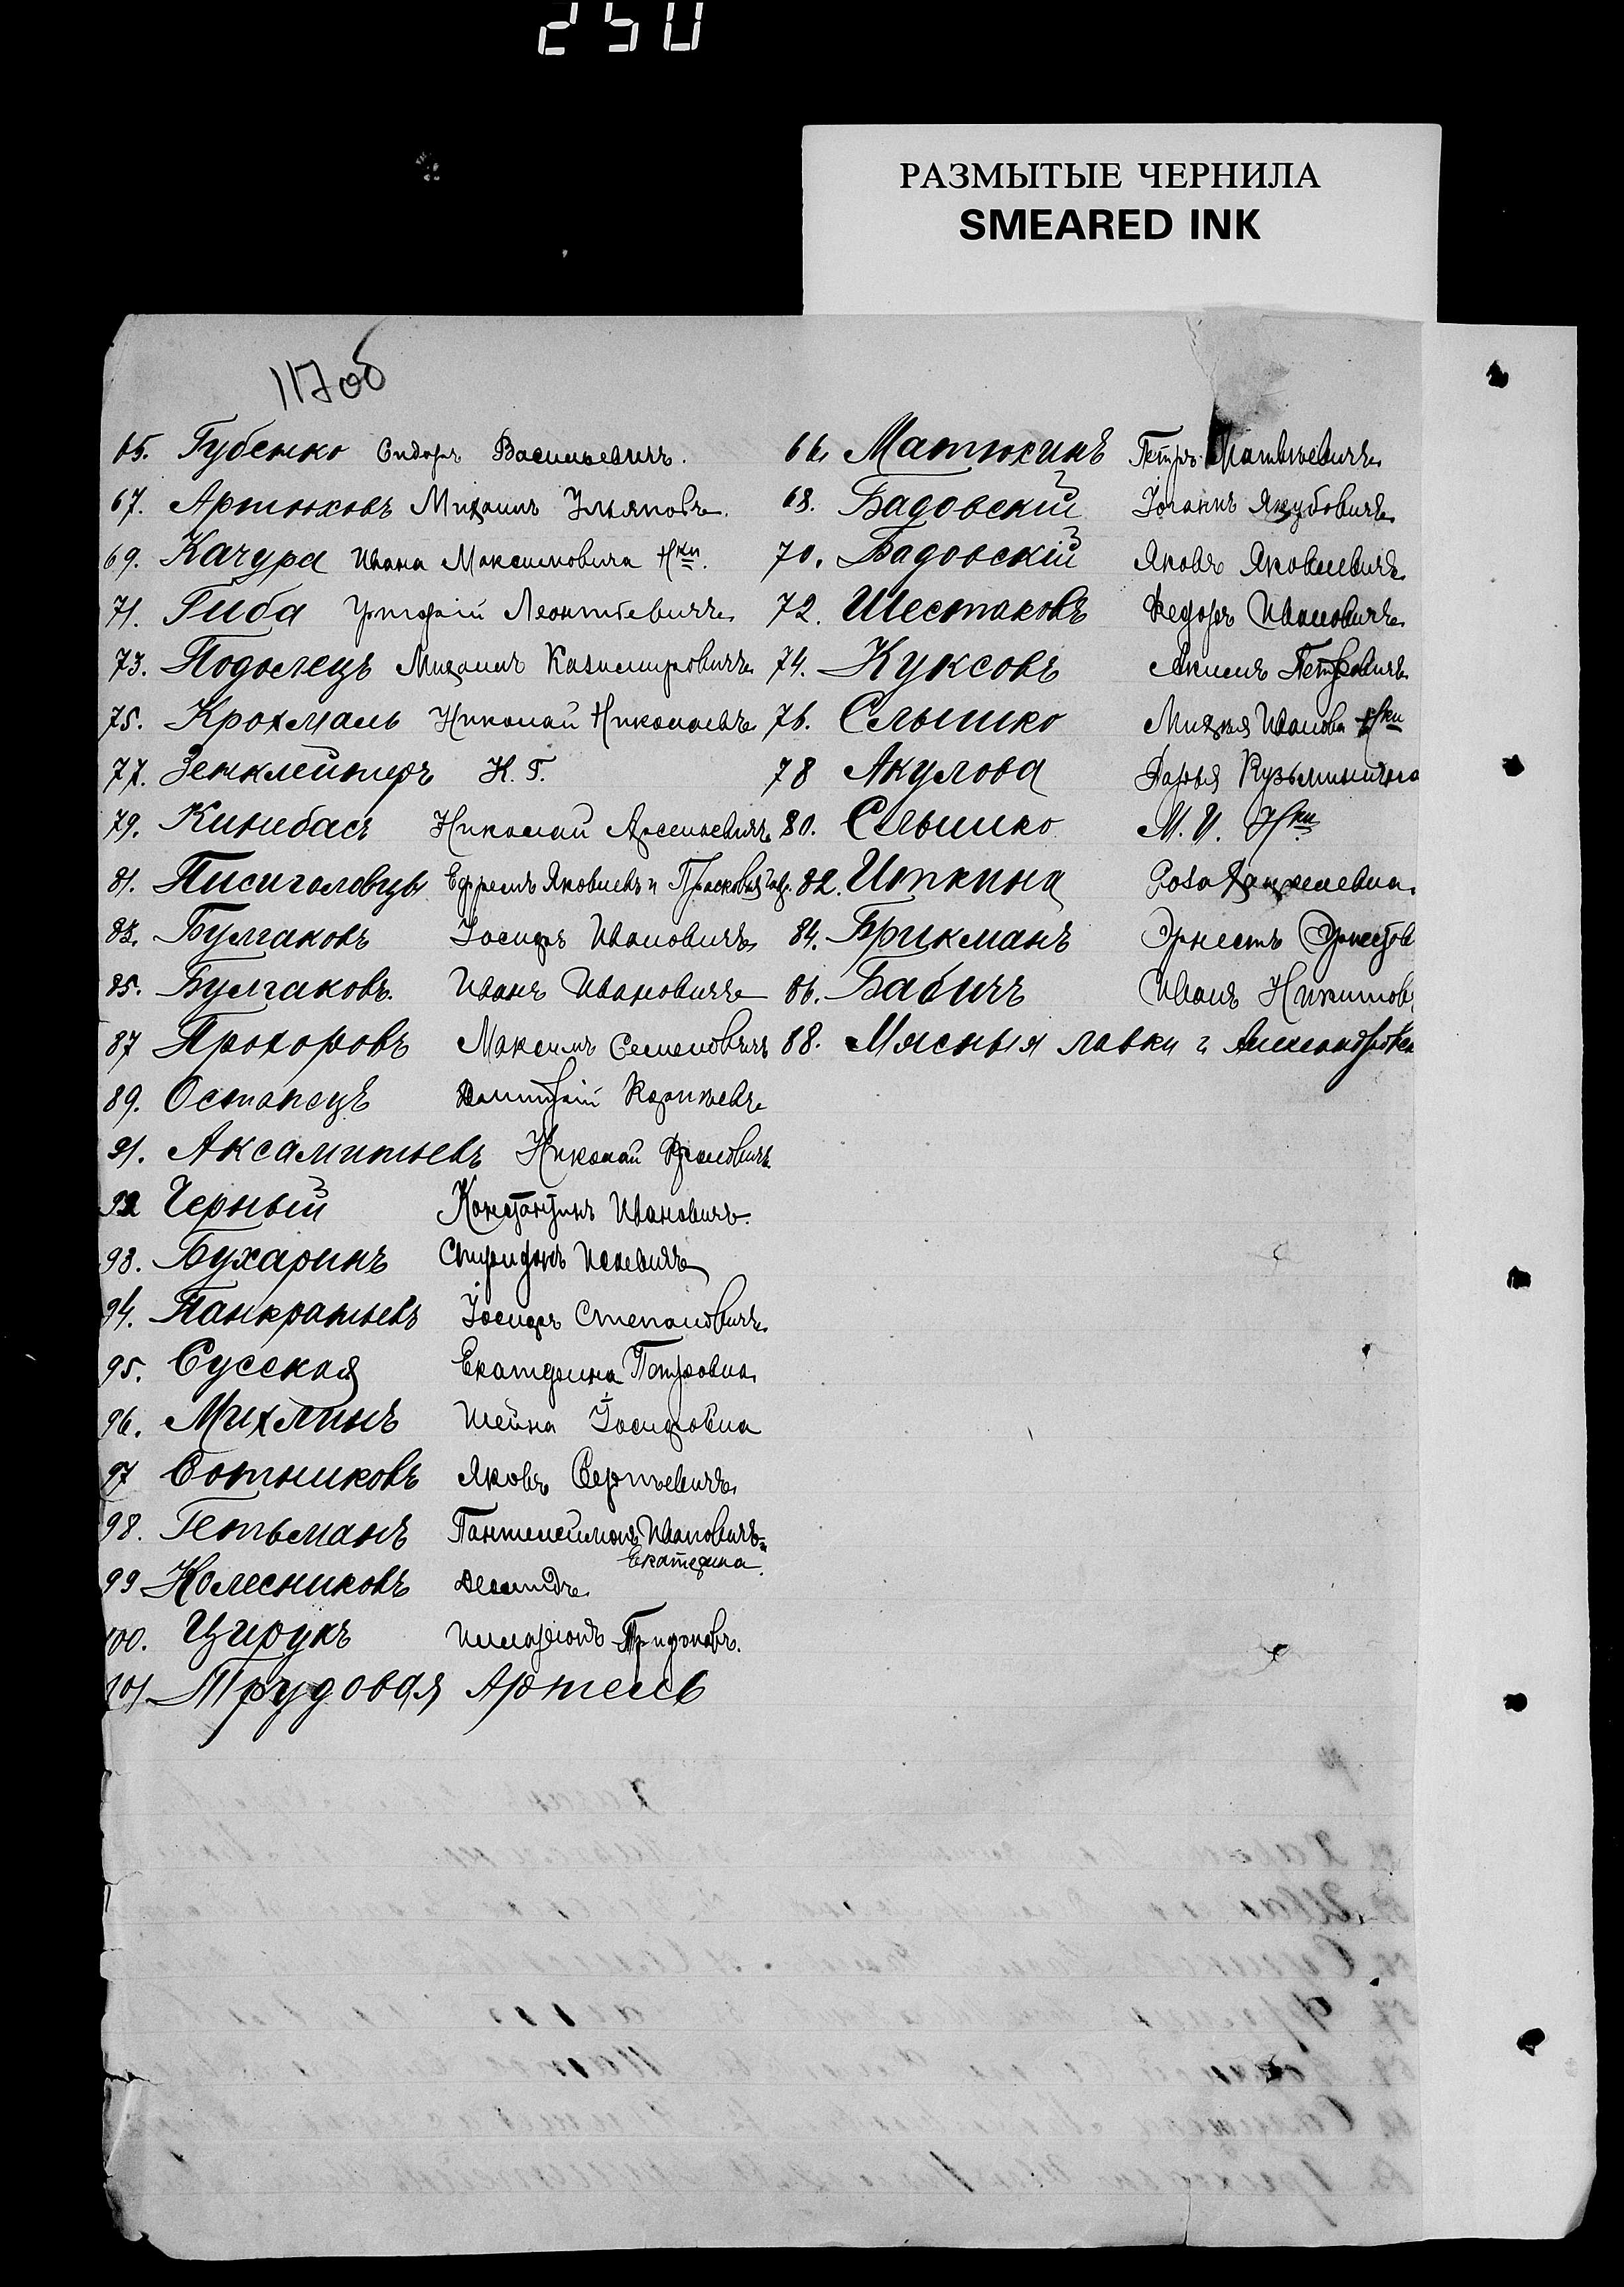 250
РАЗМЫТЫЕ ЧЕРНИЛА
SMEARED INK
117об
65. Губенко Сидоръ Васильевичъ. 66. Матюхинъ Петръ Матвѣевичъ
67. Артюховъ Михаилъ Ильяновъ 68. Бадовскій Іоганнъ Якубовичъ
69. Качура Ивана Максимовича Нки. 70. Бадовскій Яковъ Яковлевичъ
71. Гиба Григорій Леонтьевичъ 72. Шестаковъ Федоръ Ивановичъ
73. Подолецъ Михаилъ Казимировичъ 74. Куксовъ Акимъ Петровичъ
75. Крохмаль Николай Николаевъ 76. Слышко Иванова Нки
77. Зенклейтеръ К. Г. 78 Акулова Дарья Кузьминична
79. Кинебасъ Николай Арсеньевичъ 80. Слышко М. И. Нки
81. Писиголовцы Ефремъ Яковлевъ и Прасковья 82. Иткина Роза
83. Булгаковъ Іосифъ Ивановичъ 84. Брикманъ Эрнестъ Эрнестов
85. Булгаковъ. Иванъ Ивановичъ 86. Бабичъ Иванъ Никитов
87 Прохоровъ Максимъ Семеновичъ 88. Мясныя лавки г. Александровск
89. Останецъ Дмитрій
91. Аксамитьевъ Николай Фроловичъ
92 Черный Константинъ Ивановичъ.
93. Бухаринъ Спиридонъ
94. Панкратьевъ Іосифъ Степановичъ
95. Сусская Екатерина Петровна
96. Михлинъ Шейна Іосифовна
97 Сотниковъ Яковъ Сергѣевичъ
98. Гетьманъ Пантелеймонъ Ивановичъ
Екатерина
99 Колесниковъ Демидъ
100. Цирукъ Илларіонъ Трифоновъ.
101 Трудовая Артель